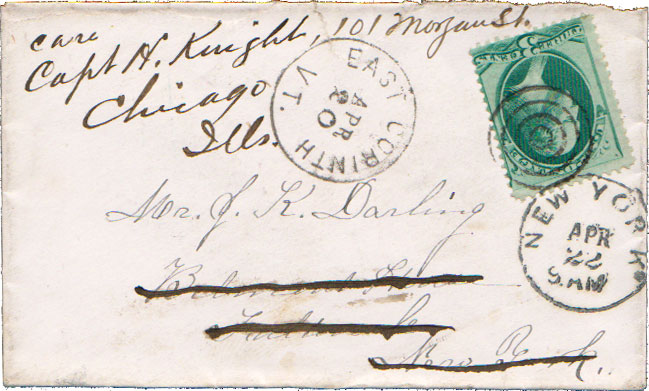 care
Capt H. Knight, 101 Morgan St.
Chicago
Ills.
EAST CORINTH VT.
APR
20
NEW YORK
APR
22
5 AM
Mr. J. K. Darling
New York.